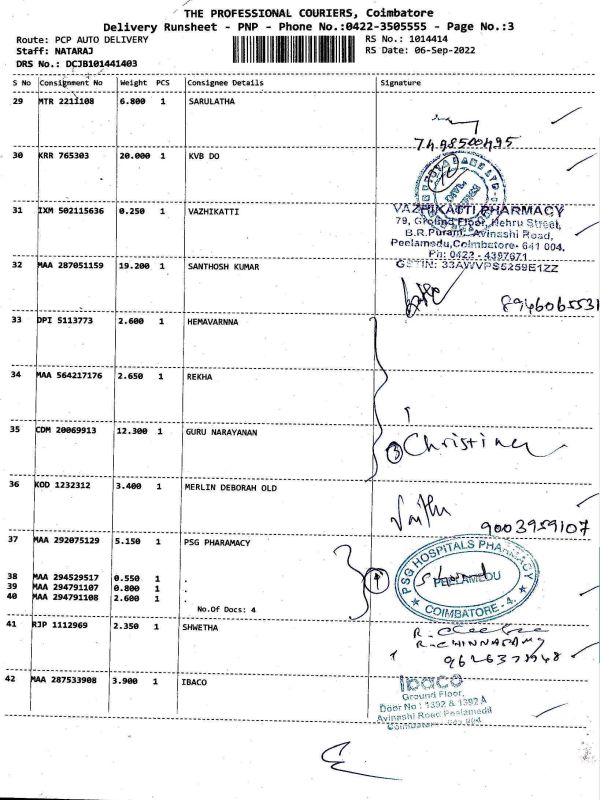 THE PROFESSIONAL COURIERS, Coimbatore
Delivery Runsheet - PNP - Phone No.:0422-3505555 - Page No.:3
Route: PCP AUTO DELIVERY
RS No.: 1014414
Staff: NATARAJ
RS Date: 06-Sep-2022
DRS No.: DCJB101441403
S No Consignment No Weight PCS Consignee Details Signature
29 MTR 2211108 6.800 1 SARULATHA
30 KRR 765303 20.000 1 KVB DO
31 IXM 502115636 0.250 1 VAZHIKATTI
VAZHIKATTI PHARMACY
79, Ground Floor, Nehru Street,
B.R.Puram, Avinashi Road,
Peelamedu,Coimbatore- 641 004.
Ph: 0422 - 4397671
GSTIN: 33AWVPS5259E1ZZ
32 MAA 287051159 19.200 1 SANTHOSH KUMAR
8946065531
33 DPI 5113773 2.600 1 HEMAVARNNA
34 MAA 564217176 2.650 1 REKHA
35 CDM 20069913 12.300 1 GURU NARAYANAN
3 Christina
36 KOD 1232312 3.400 1 MERLIN DEBORAH OLD
9003959107
37 MAA 292075129 5.150 1 PSG PHARAMACY
38 MAA 294529517 0.550 1 .
39 MAA 294791107 0.800 1 .
40 MAA 294791108 2.600 1 .
No.Of Docs: 4
4
PSG HOSPITALS PHARMACY
PEELAMEDU
COIMBATORE - 4.
41 RJP 1112969 2.350 1 SHWETHA
R. CHINNASAMY
42 MAA 287533908 3.900 1 IBACO
Ibaco
Ground Floor,
Door No : 1392 & 1392 A
Avinashi Road Peelamedu